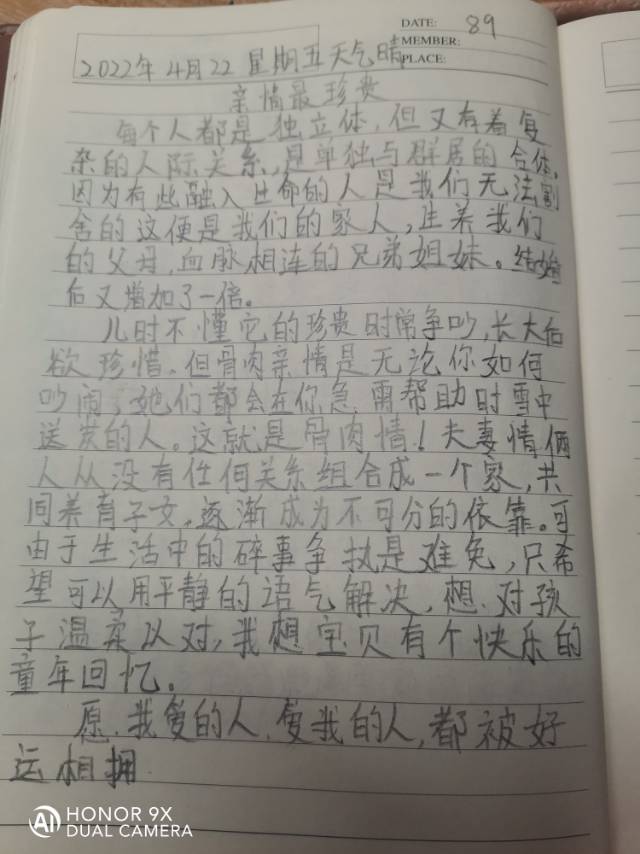 DATE: 89
MEMBER:
PLACE:
2022年4月22 星期五天气晴
亲情最珍贵
每个人都是独立体,但又有着复
杂的人际关系,是单独与群居的合体。
因为有些融入生命的人是我们无法割
舍的这便是我们的家人,生养我们
的父母,血脉相连的兄弟姐妹。结婚
后又增加了一倍。
儿时不懂它的珍贵时常争吵,长大后
欲珍惜。但骨肉亲情是无论你如何
吵闹,她们都会在你急,需帮助时雪中
送炭的人。这就是骨肉情!夫妻情俩
人从没有任何关系组合成一个家,共
同养育子女,逐渐成为不可分的依靠。可
由于生活中的碎事争执是难免,只希
望可以用平静的语气解决,想.对孩
子温柔以对,我想宝贝有个快乐的
童年回忆。
愿.我爱的人.爱我的人,都被好
运相拥
HONOR 9X
DUAL CAMERA